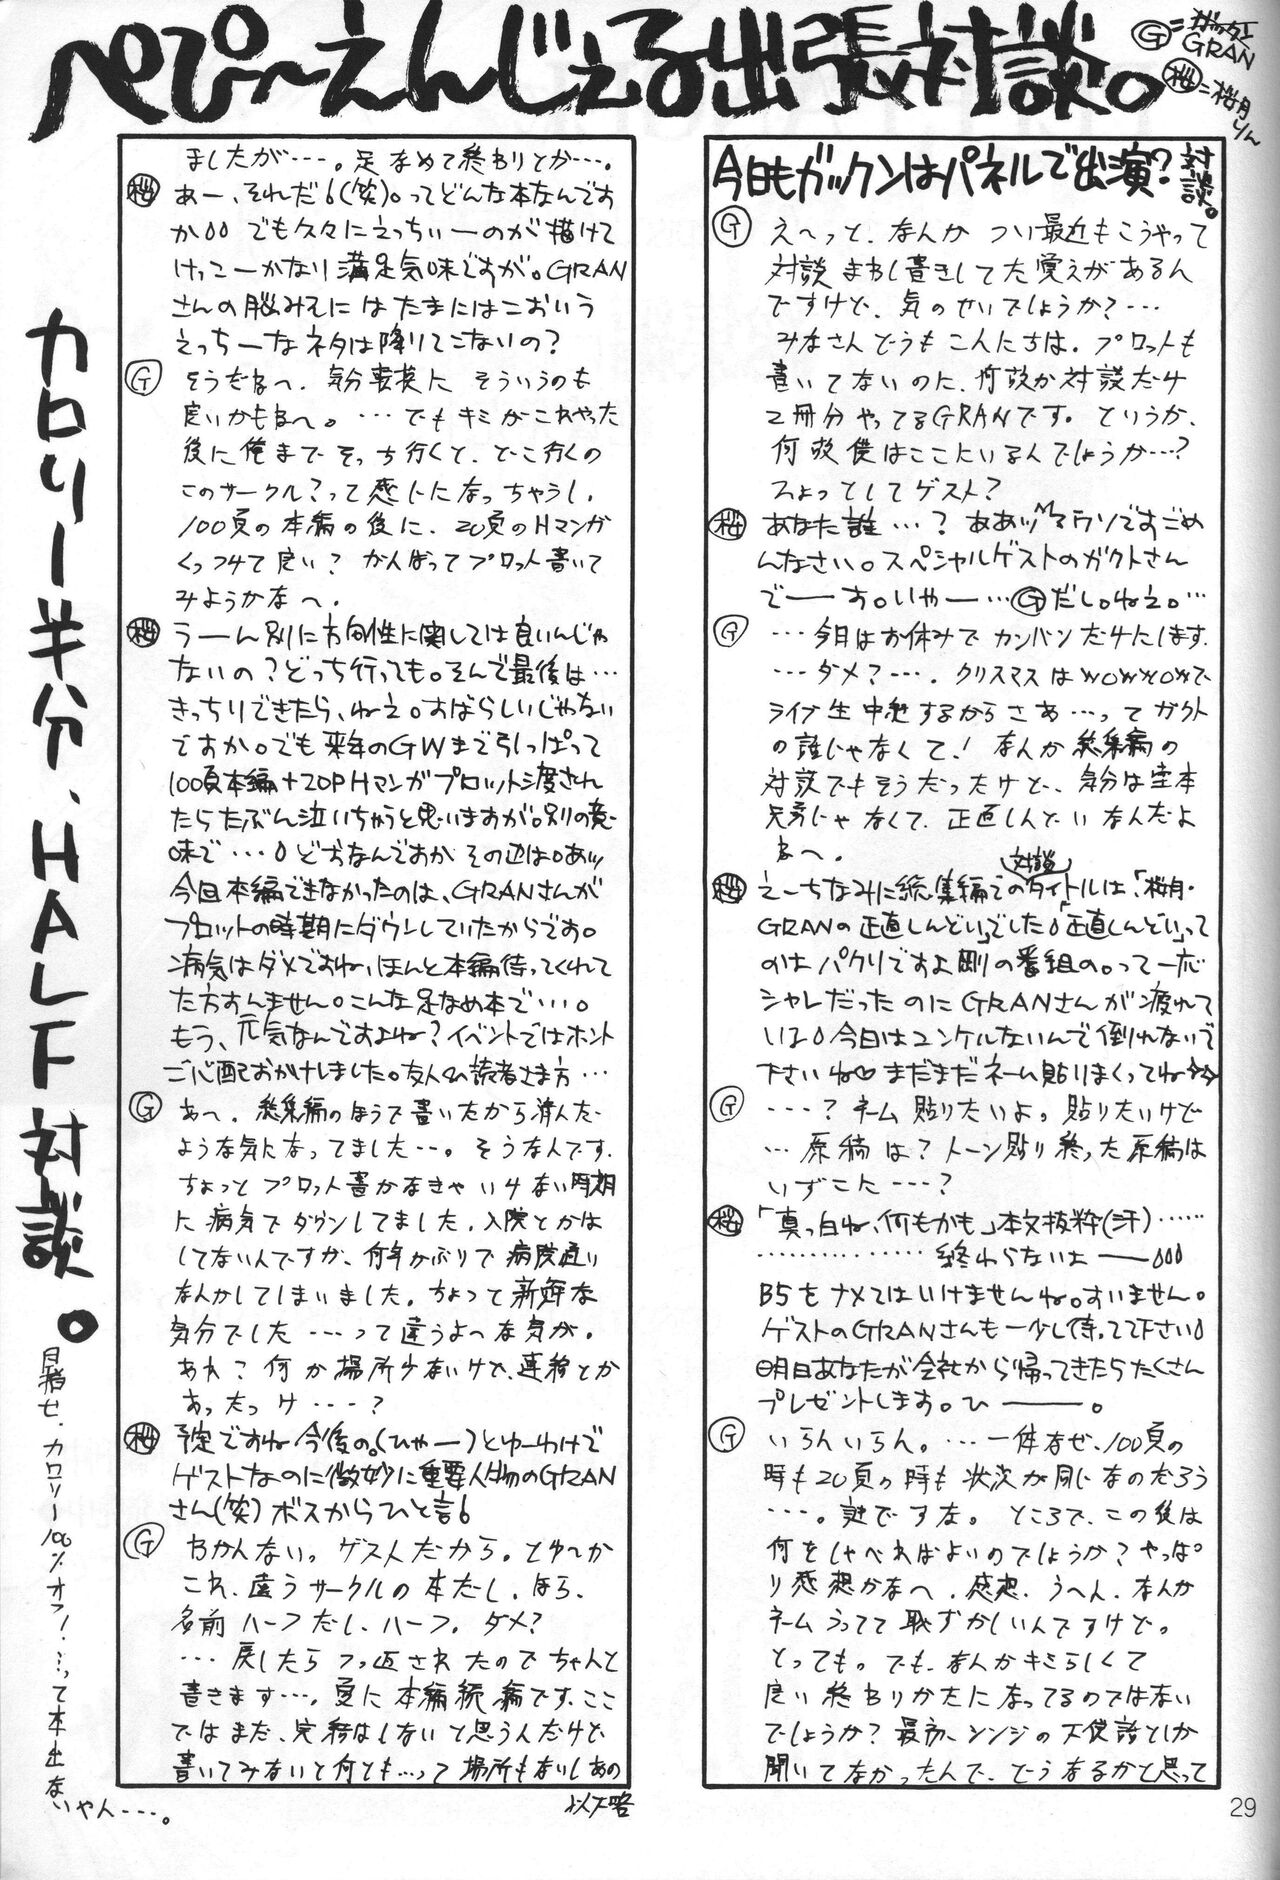 ぺぴ〜えんじぇる出張対談。
Ⓖ=ガックン GRAN
桜=桜月りん
今日もガックンはパネルで出演?対談。
Ⓖ え〜っと、なんか つい最近もこうやって
対談 まわし書きしてた覚えがあるん
ですけど、気のせいでしょうか?…
みなさんどうもこんにちは。プロットも
書いてないのに、何故か対談だけ
2冊分やってるGRANです。というか、
何故僕はここにいるんでしょうか…?
ひょっとしてゲスト?
桜 あなた誰…?ああッウソですごめ
んなさい。スペシャルゲストのガクトさん
でーーす。いやー…Ⓖだし。ねえ。…
Ⓖ …今日はお休みで カンバンだけにします。
…ダメ?…。クリスマスはWOWWOWで
ライブ生中継するからさあ…ってガクト
の誰じゃなくて!なんか総集編の
対談でもそうだったけど、気分は堂本
兄弟じゃなくて、正直しんどい なんだよ
な〜。
桜 えーちなみに総集編での対談タイトルは「桜月・
GRANの正直しんどい」でした「正直しんどい」って
のはパクリですよ剛の番組の。って一応
シャレだったのにGRANさんが疲れて
いる 今日はユンケルないんで倒れないで
下さいね♡まだまだネーム貼りまくってね
Ⓖ …?ネーム貼りたいよ。貼りたいけど
…原稿は?トーン貼り終った原稿は
いずこに…?
桜 「真っ白ね、何もかも」本文抜粋(汗)……
……………終わらないよーー
B5をナメてはいけませんね。すいません。
ゲストのGRANさんも一少し待ってて下さい
明日あなたが会社から帰ってきたらたくさん
プレゼントします。ひーー。
Ⓖ いらんいらん。…一体なぜ、100頁の
時も20頁の時も状況が同じなのだろう
…。謎ですな。ところで、この後は
何をしゃべればよいのでしょうか?やっぱ
り感想かな〜。感想、う〜ん、なんか
ネームうってて恥ずかしいんですけど。
とっても。でも、なんかキミらしくて
良い終わりかたになってるのではない
でしょうか?最初、シンジの天使話としか
聞いてなかったんで、どうなるかと思って
ましたが…。足なめて終わりとか…。
桜 あー、それだ(笑)。ってどんな本なんです
か でも久々にえっちぃーのが描けて
けっこーかなり満足気味ですが。GRAN
さんの脳みそにはたまにはこおいう
えっちーなネタは降りてこないの?
Ⓖ そうだな〜、気分転換に そういうのも
良いかもな〜。…でもキミがこれやった
後に俺まで そっち行くと、どこ行くの
このサークル?って感じになっちゃうし、
100頁の本編の後に、20頁のHマンガ
くっつけて良い?がんばってプロット書いて
みようかな〜。
桜 うーん別に方向性に関しては良いんじゃ
ないの?どっち行っても。そんで最後は…
きっちりできたら、ねえ。すばらしいじゃない
ですか。でも来年のGWまで引っぱって
100頁本編+20PHマンガプロット渡された
らたぶん泣いちゃうと思いますが。別の意
味で… どおなんですか その辺は。あッ
今回本編できなかったのは、GRANさんが
プロットの時期にダウンしていたからです。
病気はダメですね、ほんと本編待ってくれて
た方すんません。こんな足なめ本で…。
もう、元気なんですよね?イベントではホント
ご心配おかけしました。友人&読者さま方…
Ⓖ あ〜、総集編のほうで書いたから済んだ
ような気になってました…。そうなんです。
ちょっとプロット書かなきゃいけない時期
に病気でダウンしてました。入院とかは
してないんですが、何年かぶりで病院通い
なんかしてしまいました。ちょっと新鮮な
気分でした…って違うよ〜な気が。
あれ?何か場所少ないけど、連絡とか
あったっけ…?
桜 予定ですね今後の。(ひゃー)とゆーわけで
ゲストなのに微妙に重要人物のGRAN
さん(笑)ボスからひと言
Ⓖ わかんない。ゲストだから。とゆ〜か
これ、違うサークルの本だし。ほら、
名前ハーフだし、ハーフ。ダメ?
…戻したらつっ返されたのでちゃんと
書きます…。更に本編続編です。ここ
ではまだ、完結はしないと思うんだけど
書いてみないと何とも…って場所もないしあの
以下略
カロリー半分、HALF対談。
目指せ、カロリー100%オフ!…って本出ないやん…。
29